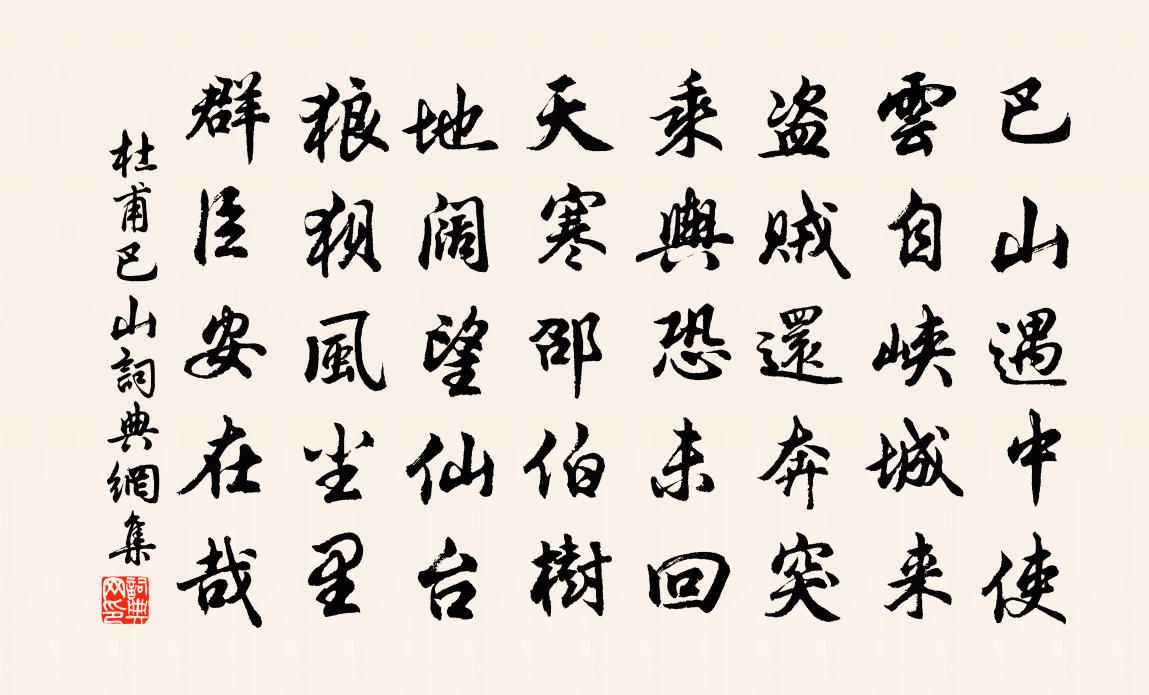 巴山遇中使
雲自峽城来
盗賊還奔突
乘輿恐未回
天寒邵伯樹
地阔望仙台
狼狽風尘里
群臣安在哉
杜甫巴山詞典網集
詞典网印